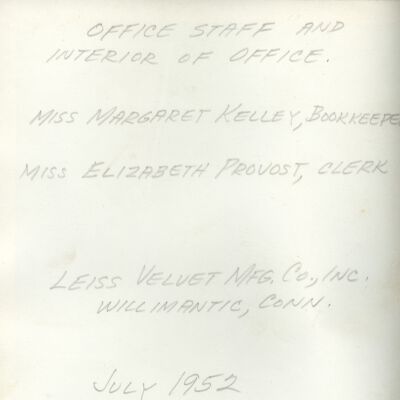 OFFICE STAFF AND
INTERIOR OF OFFICE.
MISS MARGARET KELLEY, BOOKKEEPE
MISS ELIZABETH PROVOST, CLERK
LEISS VELVET MFG. CO., INC.
WILLIMANTIC, CONN.
JULY 1952